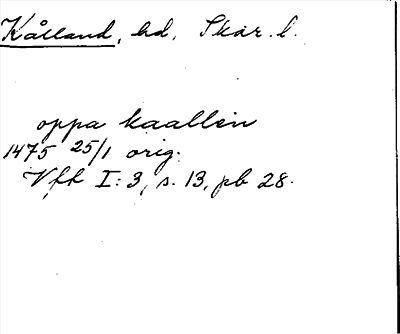 Kålland, hd, Skar. l.
oppa kaallen
1475 25/1 orig.
Vft I: 3, s. 13, pb 28.